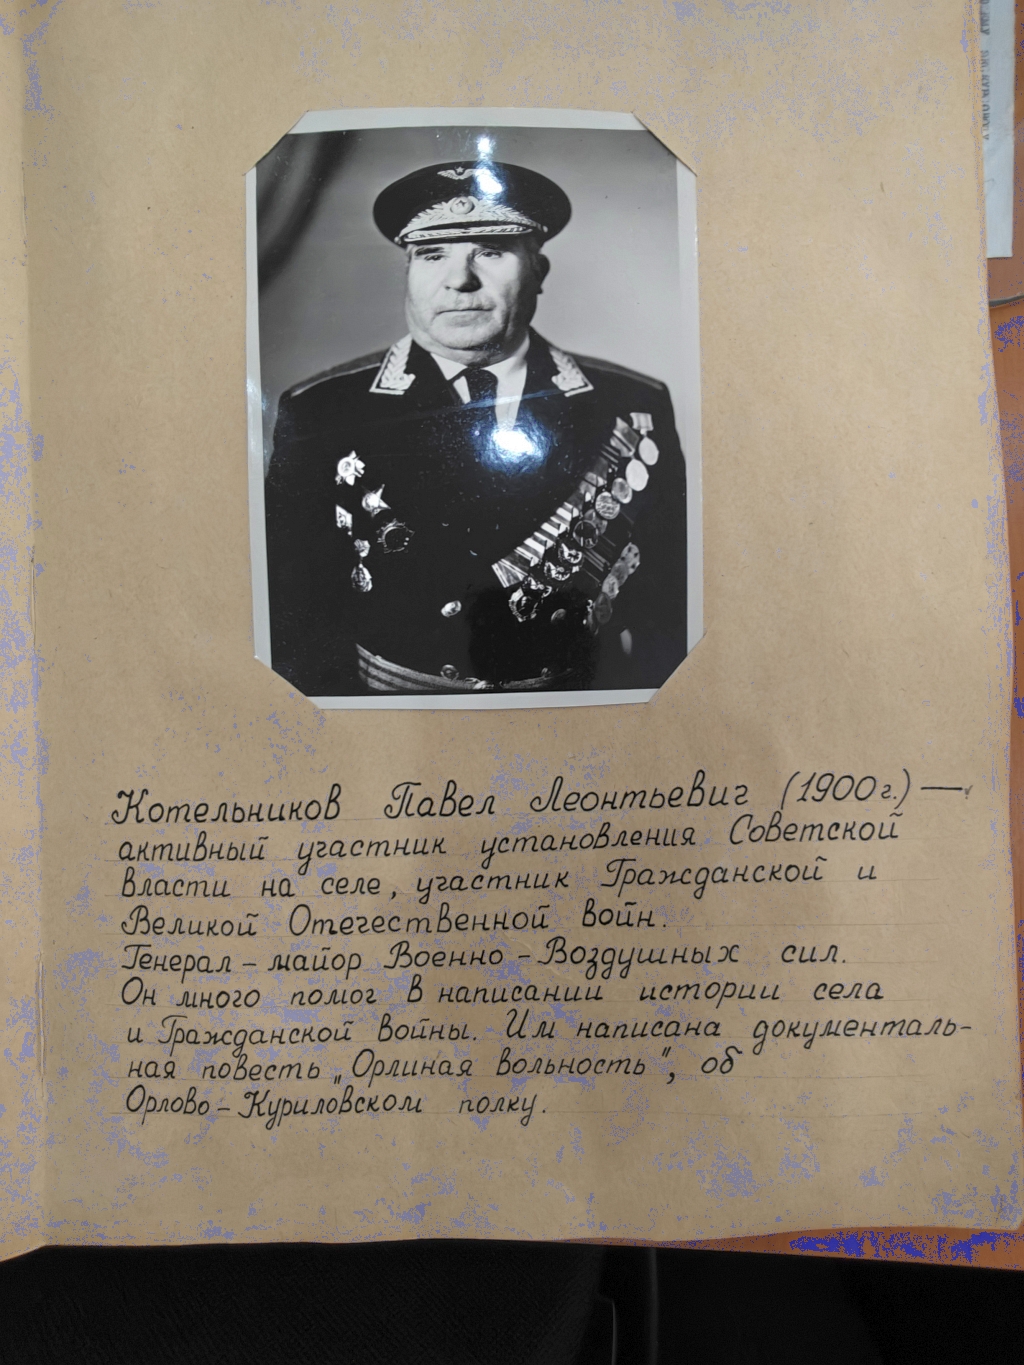 Котельников Павел Леонтьевич (1900г.) —
активный участник установления Советской
власти на селе, участник Гражданской и
Великой Отечественной войн.
Генерал-майор Военно-Воздушных сил.
Он много помог в написании истории села
и Гражданской войны. Им написана документаль-
ная повесть „Орлиная вольность", об
Орлово-Куриловском полку.